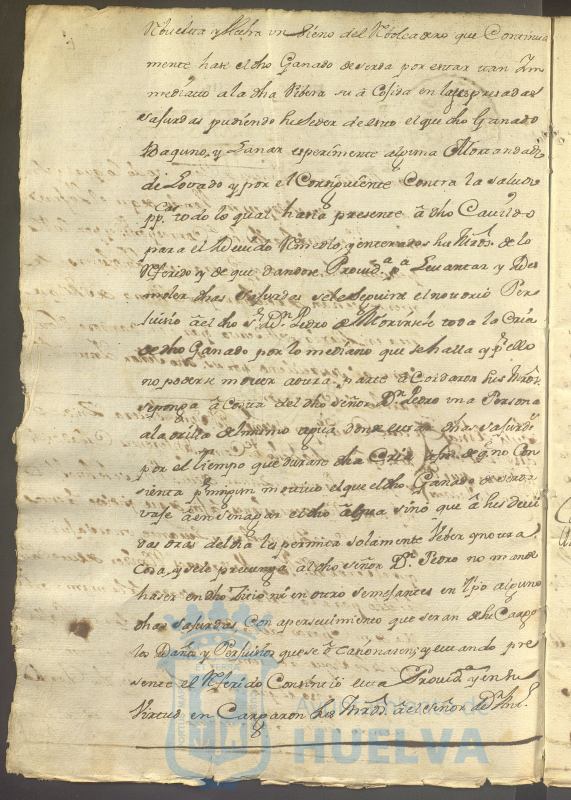 rebuelta y hecha un sieno del Rebolcadero que Continua
mente hase el dho Ganado de serda por estar tan Im
mediato a la dha Rivera su acojida en las expresadas
sahurdas pudiendo suseder de esto el que dho Ganado
Bacuno, y Lanar experimente alguna Mortandad
de Lovado y por el Consiguiente Contra la salud
pp.ca todo lo qual hasia presente â dho Cavildo
para el devido Remedio, y enterados sus Mrds. de lo
Referido y de que dandose Provid.a p.a Levantar y De
moler dhas sahurdas se le seguira el notorio Per
juisio â el dho s.r D.n Pedro de Morirsele toda la Cria
de dho Ganado por lo mediano que se halla y p.r ello
no poderse mover a otra parte acordaron sus Mrds.
se ponga â Costa del dho señor D.n Pedro una Persona
a la orilla del mismo agua donde estan dhas sahurdas
por el tiempo que durare dha Cria a fin de q.e no Con
sienta p.r ningun motivo el que el dho Ganado de serda
vaje â ensenagar el dho agua sino que â sus devi
das oras del dia les permita solamente beber y no otra
Cosa, y se le prevenga al dho señor D.n Pedro no mande
haser en dho sitio ni en otro semejantes en tpo alguno
dhas sahurdas con apersevimiento que seran de su Cargo
los Daños y Perjuisios que se ocacionasen; y estando pre
sente el Referido Consintio esta Provid.a y en su
Virtud en Cargaron sus Mrds. â el señor D.n
AYUNTAMIENTO DE
HUELVA